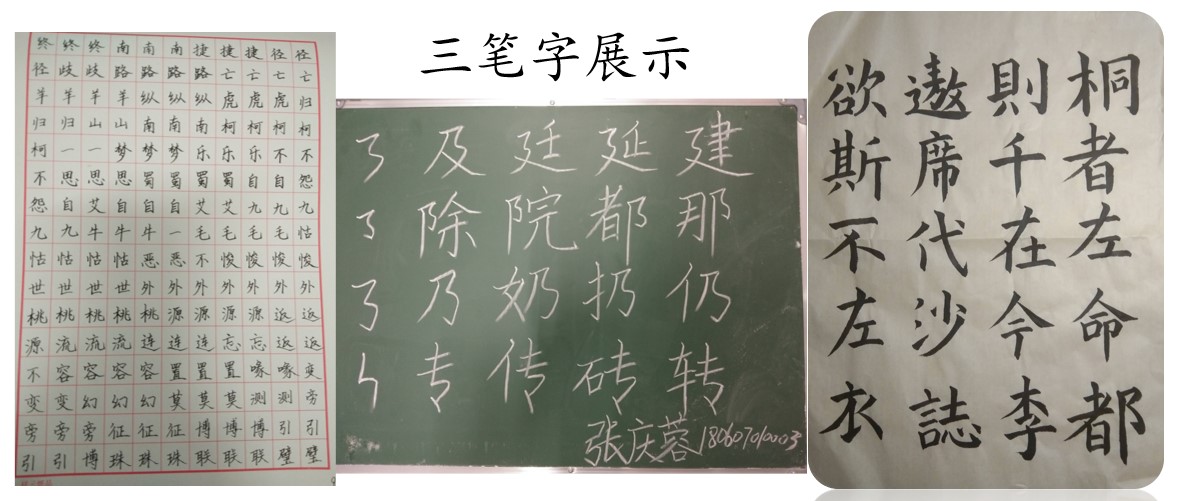 三笔字展示
终终终南南南捷捷捷径径
径歧歧路路路路亡亡亡亡
羊羊羊羊纵纵纵虎虎虎归
归归山山南南南柯柯柯柯
柯一一梦梦梦乐乐乐不不
不思思思蜀蜀蜀蜀自自怨
怨自艾自自自艾艾九九九
九九牛牛牛一毛毛毛毛怙
怙怙怙怙恶恶不悛悛悛悛
世世世世外外外外外外外
桃桃桃桃桃源源源源返返
源流流流连连连忘忘返返
不容容容容置置置喙喙变
变变幻幻幻莫莫莫测测旁
旁旁旁征征征博博博引引
引引博珠珠珠联联联璧璧
及 廷 延 建
除 院 都 那
乃 奶 扔 仍
专 传 砖 转
张庆蓉 18060701003
桐者左命都
則千在今李
遨席代沙誌
欲斯不左衣